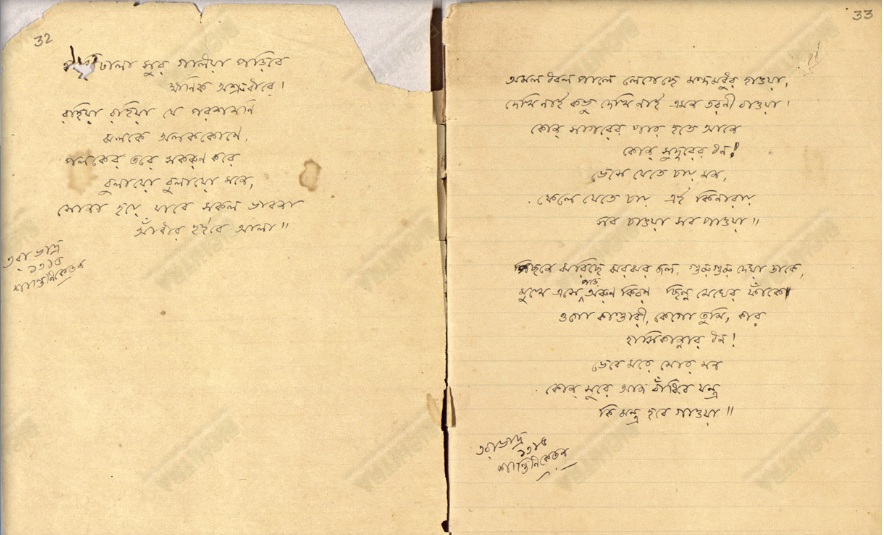 32
ঢালা সুর গলিয়া পড়িবে
ক্ষণিক অশ্রুনীরে।
রহিয়া রহিয়া যে পরশমণি
ঝলকে অলককোণে,
পলকের তরে সকরুণ করে
বুলায়ো বুলায়ো মনে,
সোনা হয়ে যাবে সকল ভাবনা
আঁধার হইবে আলা॥
৩রা ভাদ্র
১৩১৫
শান্তিনিকেতন
33
অমল ধবল পালে লেগেছে মন্দমধুর হাওয়া,
দেখি নাই কভু দেখি নাই এমন তরণী বাওয়া।
কোন্ সাগরের পার হতে আনে
কোন্ সুদূরের ধন!
ভেসে যেতে চায় মন,
ফেলে যেতে চায় এই কিনারায়
সব চাওয়া সব পাওয়া॥
পিছনে ঝরিছে ঝরঝর জল, গুরুগুরু দেয়া ডাকে,
মুখে এসে পড়ে অরুণ কিরণ ছিন্ন মেঘের ফাঁকে।
ওগো কাণ্ডারী, কেগো তুমি, কার
হাসিকান্নার ধন!
ভেবে মরে মোর মন
কোন্ সুরে আজ বাঁধিবে যন্ত্র
কি মন্ত্র হবে গাওয়া॥
৩রা ভাদ্র
১৩১৫
শান্তিনিকেতন